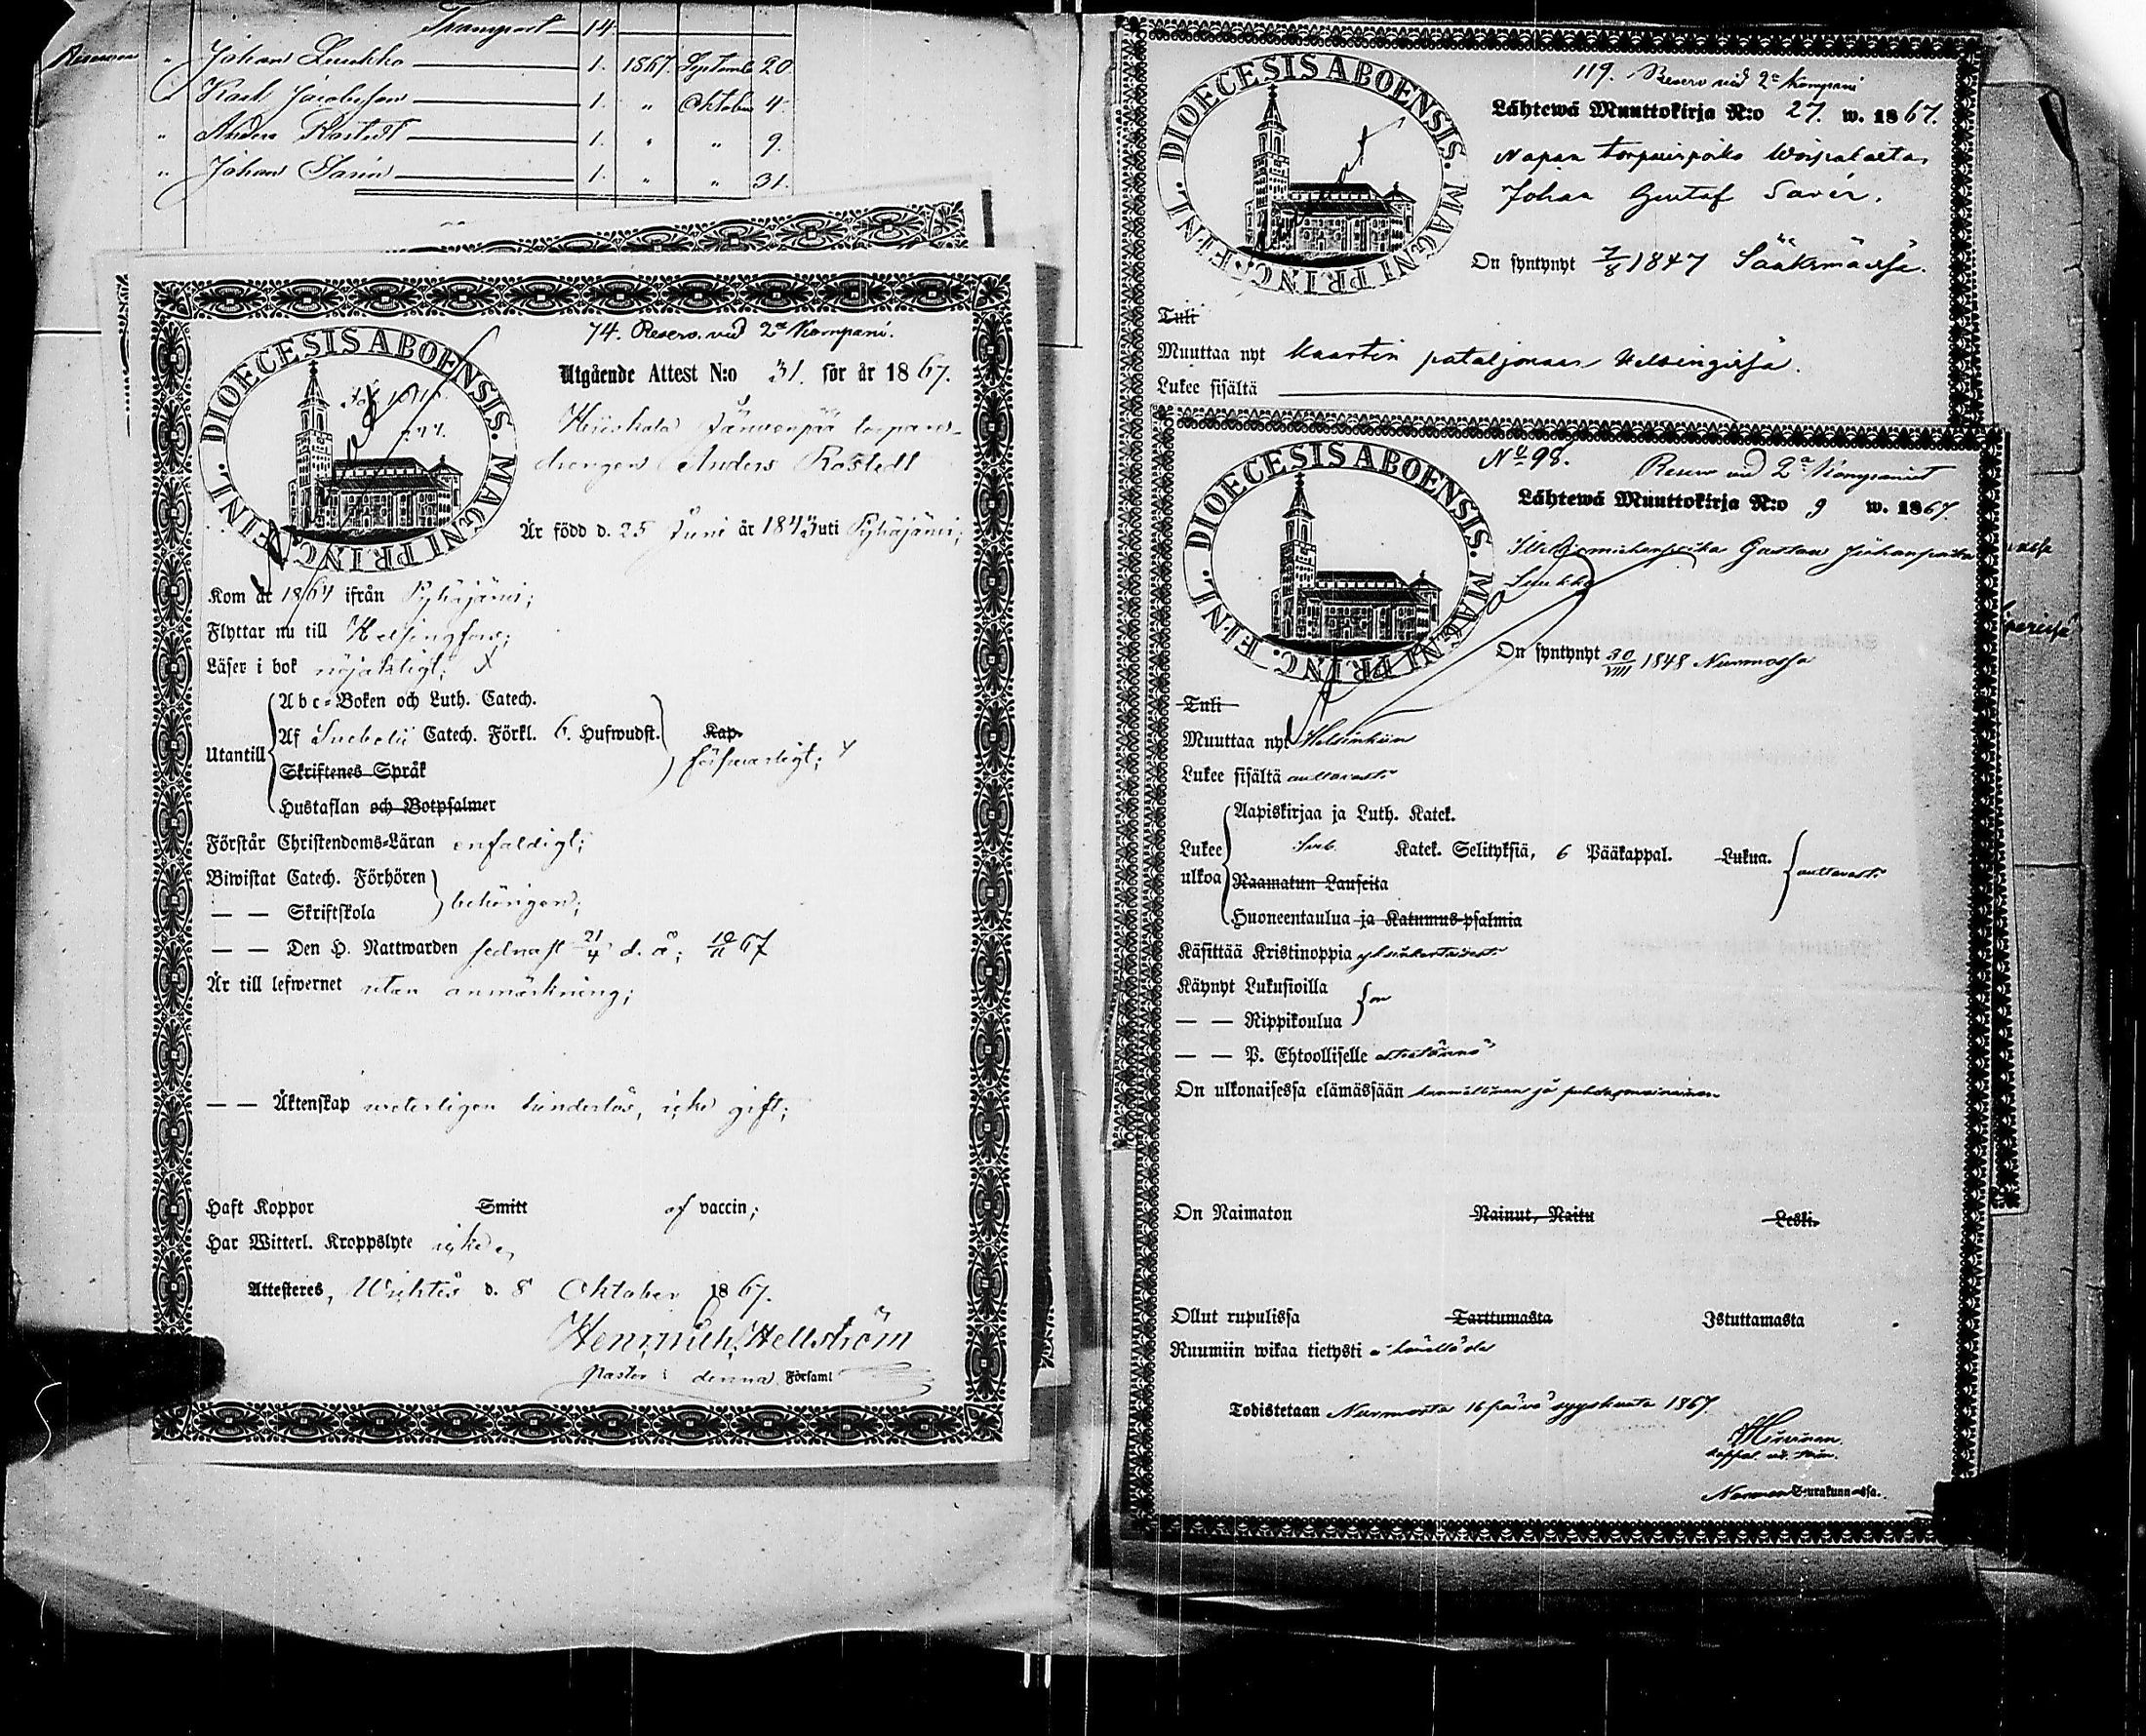 Transport 14
" Johan Luukko 1. 1867. Septemb 20
" Karl Jacobsson 1. " Oktober 4.
" Anders Rostedt 1. " " 9.
" Johan Sarin 1. " " 31.
DIOECESIS ABOENSIS. MAGNI PRINC. FINL.
74. Reserv. vid 2a Kompani.
Utgående Attest N:o 31. för år 1867.
Hiiskula Järvenpää torpare-
drengen Anders Rostedt
Är född d. 25 Juni år 1843 uti Pyhäjärvi;
Kom år 1864 ifrån Pyhäjärvi;
Flyttar nu till Helsingfors;
Läser i bok nöjaktigt;
Utantill
Abc-Boken och Luth. Catech.
Af Svebelii Catech. Förkl. 6. Hufwudst. Kap.
försvarligt;
Skriftenes Språk
Hustaflan och Botpsalmer
Förstår Christendoms-Läran enfaldigt;
Biwistat Catech. Förhören
— — Skriftskola
behörigen;
— — Den H. Nattwarden sednast 21/4 d. å;
Är till lefwernet utan anmärkning;
— — Äktenskap veterligen hinderlös, icke gift;
Haft Koppor Smitt af vaccin;
Har Witterl. Kroppslyte icke.
Attesteres, Wichtis d. 8 Oktober 1867.
Hellström
Pastor i denna Församl
DIOECESIS ABOENSIS. MAGNI PRINC. FINL.
119. Reserv vid 2a Kompani
Lähtewä Muuttokirja N:o 27. w. 1867.
Johan Gustaf Sarèn.
On syntynyt 7/8 1847 Sääksmäessä.
Tuli
Muuttaa nyt Kaartin pataljonaan Helsingissä.
Lukee sisältä
DIOECESIS ABOENSIS. MAGNI PRINC. FINL.
No 98. Reserv vid 2a Kompaniet
Lähtewä Muuttokirja N:o 9 w. 1867.
Gustav Juhanpoika
Luukko
On syntynyt 30/VIII 1848 Nurmossa
Tuli
Muuttaa nyt Helsinkiin
Lukee sisältä auttavasti
Lukee ulkoa
Aapiskirjaa ja Luth. Katek.
Sveb. Katek. Selityksiä, 6 Pääkappal. Lukua.
auttavasti
Raamatun Lauseita
Huoneentaulua ja Katumus-psalmia
Käsittää Kristinoppia yksinkertaisesti
Käynyt Lukusioilla
— — Rippikoulua
on
— — P. Ehtoolliselle
On ulkonaisessa elämässään
On Naimaton Nainut, Naitu Leski.
Ollut rupulissa Tarttumasta Istuttamasta
Ruumiin wikaa tietysti
Todistetaan Nurmosta 16 päivä syyskuuta 1867.
Nurmon Seurakunnassa.